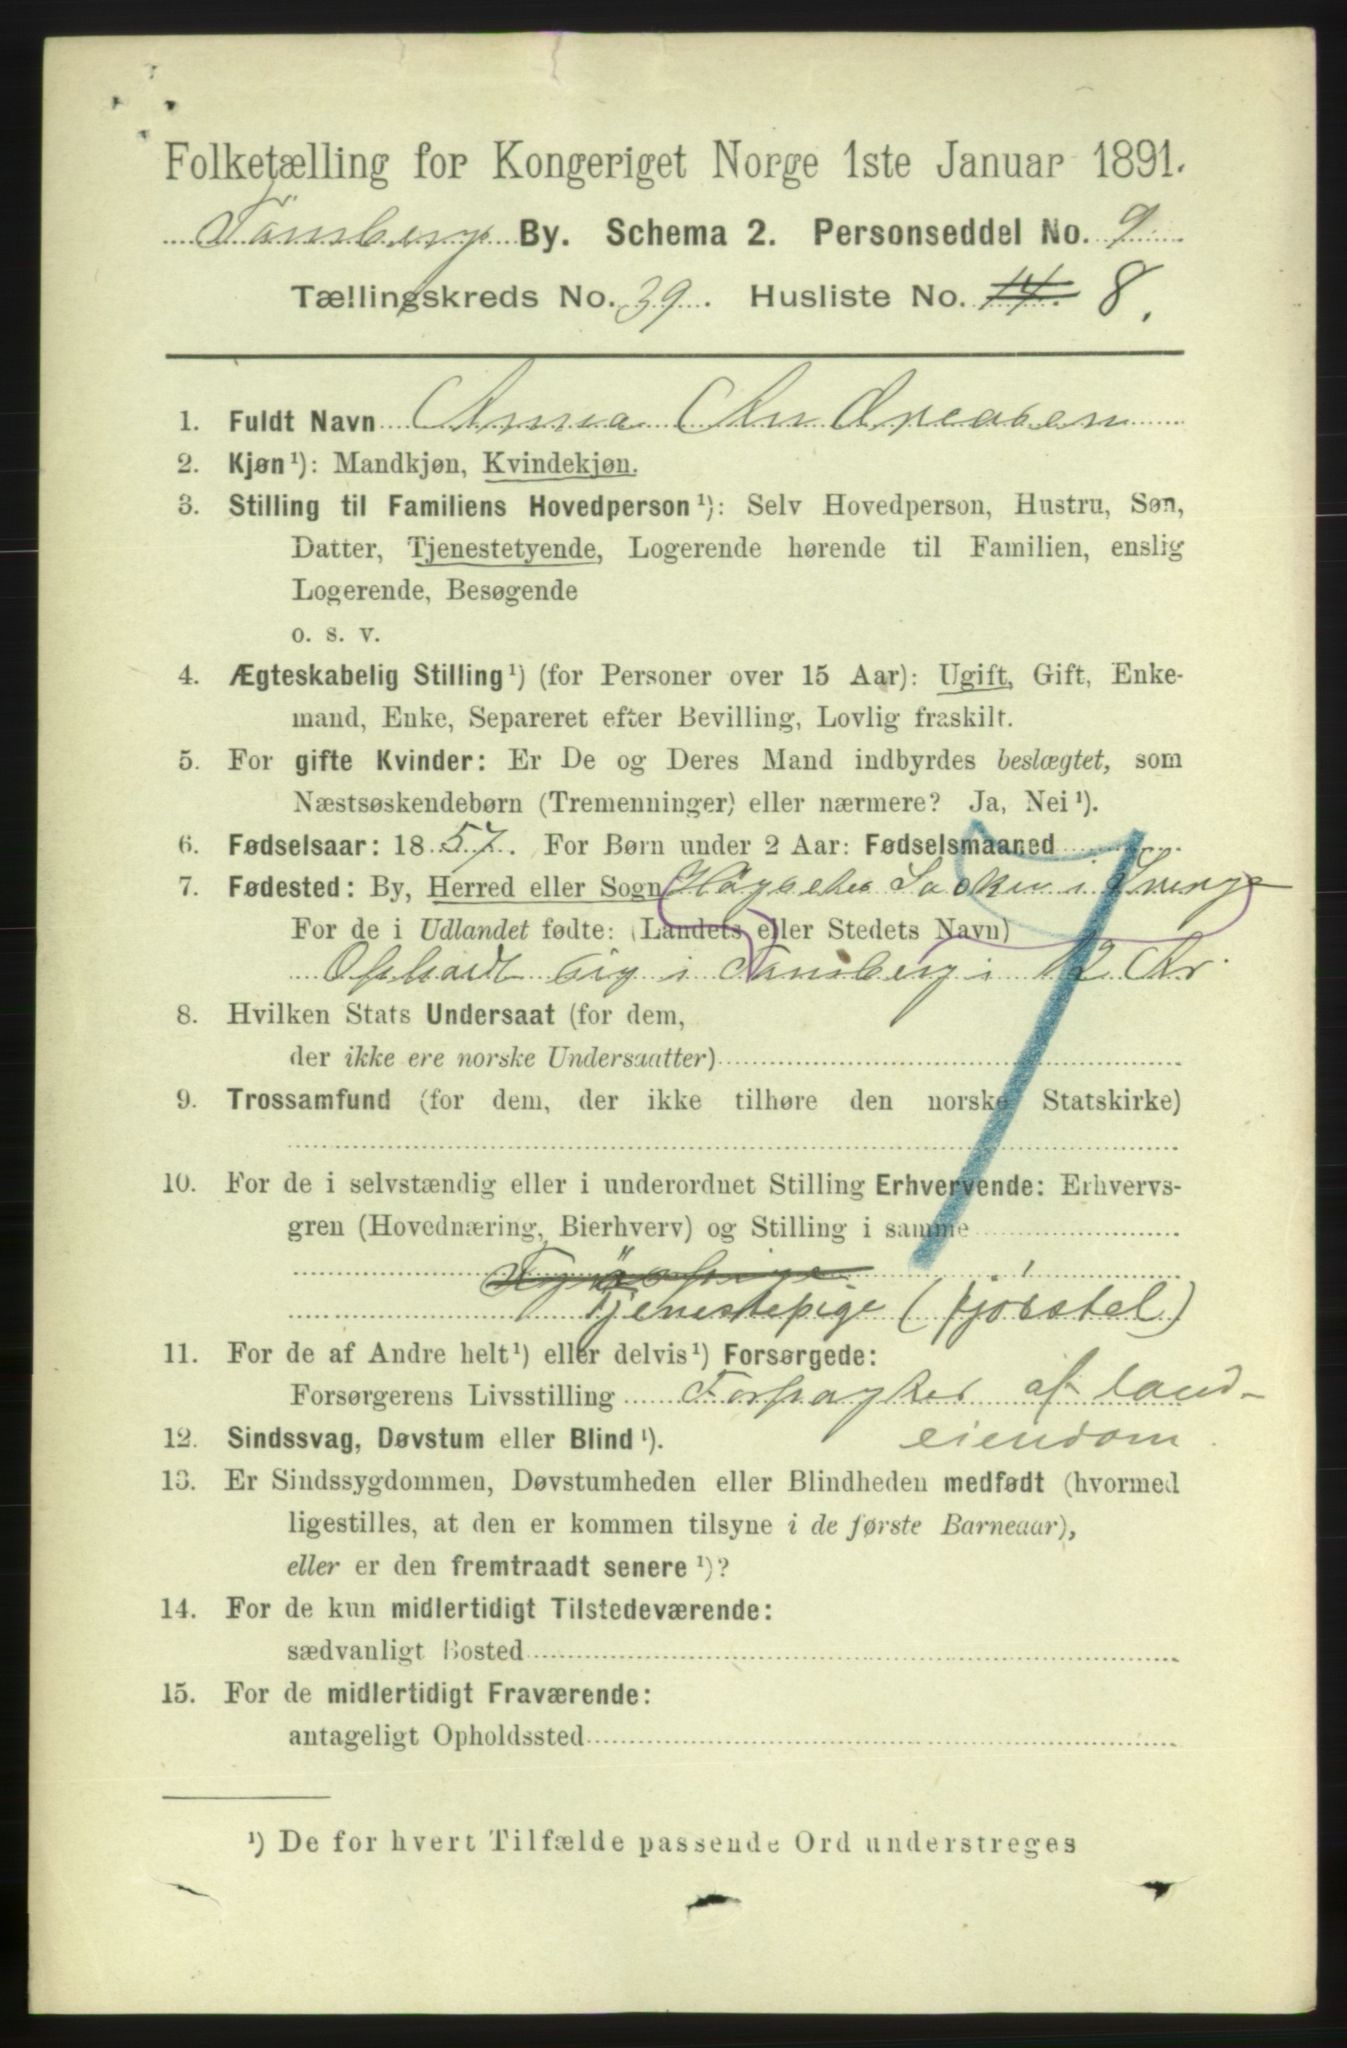 Folketælling for Kongeriget Norge 1ste Januar 1891.
Tönsberg By. Schema 2. Personseddel No. 9
Tællingskreds No. 39. Husliste No. 14. 8.
1. Fuldt Navn Anna Andreasen
2. Kjøn¹): Mandkjøn, Kvindekjøn.
3. Stilling til Familiens Hovedperson¹): Selv Hovedperson, Hustru, Søn,
Datter, Tjenestetyende, Logerende hørende til Familien, enslig
Logerende, Besøgende
o. s. v.
4. Ægteskabelig Stilling¹) (for Personer over 15 Aar): Ugift, Gift, Enke-
mand, Enke, Separeret efter Bevilling, Lovlig fraskilt.
5. For gifte Kvinder: Er De og Deres Mand indbyrdes beslægtet, som
Næstsøskendebørn (Tremenninger) eller nærmere? Ja, Nei¹).
6. Fødselsaar: 1857. For Børn under 2 Aar: Fødselsmaaned
7. Fødested: By, Herred eller Sogn i
For de i Udlandet fødte: (Landets eller Stedets Navn)
Ophold sig i Tönsberg i 12 Aar.
8. Hvilken Stats Undersaat (for dem,
der ikke ere norske Undersaatter)
9. Trossamfund (for dem, der ikke tilhøre den norske Statskirke)
10. For de i selvstændig eller i underordnet Stilling Erhvervende: Erhvervs-
gren (Hovednæring, Bierhverv) og Stilling i samme
Tjenestepige (fjösstel)
11. For de af Andre helt¹) eller delvis¹) Forsørgede:
Forsørgerens Livsstilling Forpagter af land-
12. Sindssvag, Døvstum eller Blind¹). eiendom
13. Er Sindssygdommen, Døvstumheden eller Blindheden medfødt (hvormed
ligestilles, at den er kommen tilsyne i de første Barneaar),
eller er den fremtraadt senere¹)?
14. For de kun midlertidigt Tilstedeværende:
sædvanligt Bosted
15. For de midlertidigt Fraværende:
antageligt Opholdssted
¹) De for hvert Tilfælde passende Ord understreges